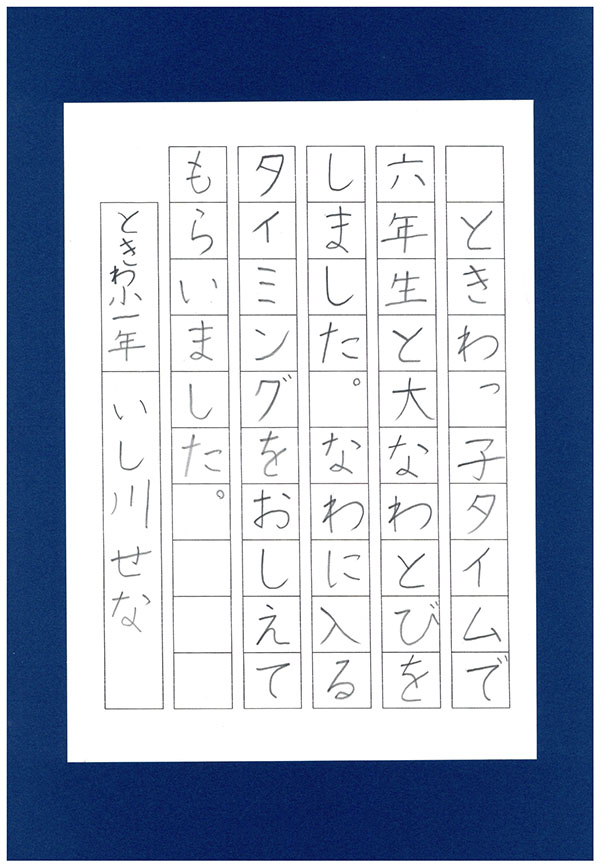 ときわっ子タイムで
六年生と大なわとびを
しました。なわに入る
タイミングをおしえて
もらいました。
ときわ小一年 いし川せな